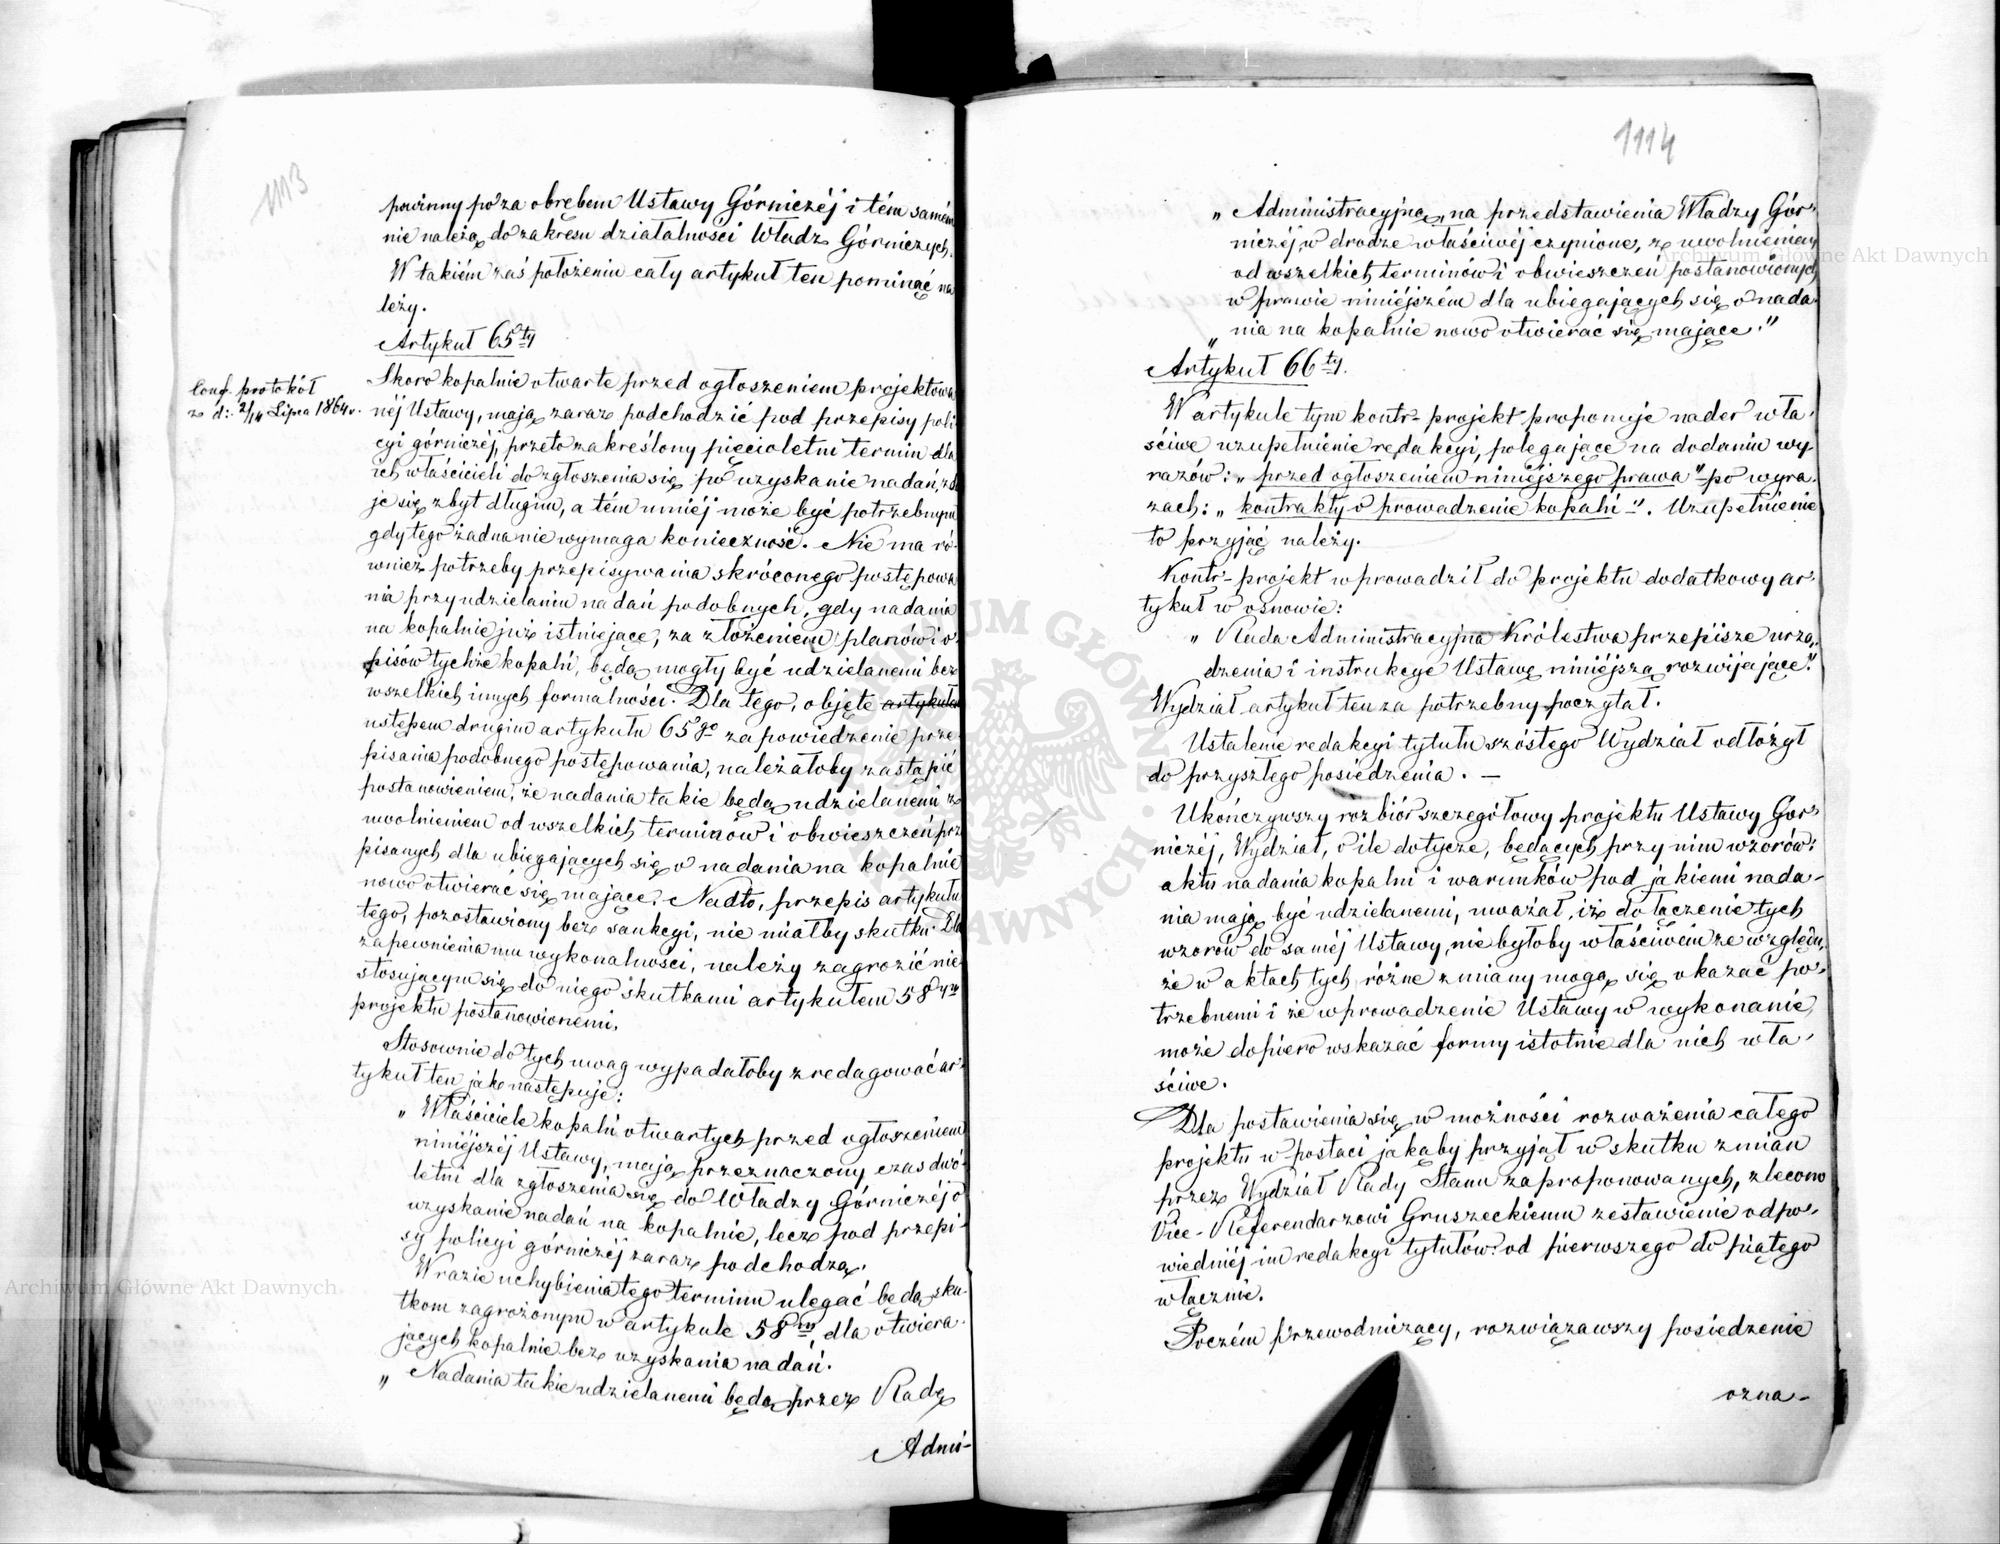 1113
powinny poza obrębem Ustawy Górniczéj i tém samém
nie należą do zakresu działalności Władz Górniczych.
W takiém zaś położeniu cały artykuł ten pominąć na
leży.
Artykuł 65ty
Conf. protokół
z d: 2/14 Lipca 1864 r.
Skoro kopalnie otwarte przed ogłoszeniem projektowa
néj Ustawy, mają zaraz podchodzić pod przepisy poli
cyi górniczéj, przeto zakreślony pięcioletni termin dla
ich właścicieli do zgłoszenia się po uzyskanie nadań, zda
je się zbyt długim, a tém mniéj może być potrzebnym
gdy tego żadna nie wymaga konieczność. Nie ma ró-
wnież potrzeby przepisywania skróconego postępowa
nia przy udzielaniu nadań podobnych, gdy nadania
na kopalnie już istniejące, za złożeniem planów i o
pisów tychże kopalń, będą mogły być udzielanemi bez
wszelkich innych formalności. Dla tego, objęte artykułem
ustępem drugim artykułu 65go zapowiedzenie prze
pisania podobnego postępowania, należałoby zastąpić
postanowieniem, że nadania takie będą udzielanemi z
uwolnieniem od wszelkich terminów i obwieszczeń prze
pisanych dla ubiegających się o nadania na kopalnie
nowo otwierać się mające. Nadto, przepis artykułu
tego, pozostawiony bez sankcyi, nie miałby skutku. Dla
zapewnienia mu wykonalności, należy zagrozić nie
stosującym się do niego skutkami artykułem 58ym
projektu postanowionemi.
Stosownie do tych uwag wypadałoby zredagować ar-
tykuł ten jak następuje:
„ Właściciele kopalń otwartych przed ogłoszeniem
niniéjszéj Ustawy, mają przeznaczony czas dwó-
letni dla zgłoszenia się do Władzy Górniczéj o
uzyskanie nadań na kopalnie, lecz pod przepi-
sy policyi górniczéj zaraz podchodzą.
W razie uchybienia tego terminu ulegać będą sku-
tkom zagrożonym w artykule 58ym dla otwiera-
jących kopalnie bez uzyskania nadań.
„ Nadania takie udzielanemi będą przez Radę
Admi-
1114
„ Administracyjną, na przedstawienia Władzy Gór-
niczéj, w drodze właściwéj czynione, z uwolnieniem
od wszelkich terminów i obwieszczeń postanowionych
w prawie niniéjszém dla ubiegających się o nada-
„ nia na kopalnie nowo otwierać się mające."
Artykuł 66ty.
W artykule tym kontr-projekt proponuje nader wła-
ściwe uzupełnienie redakcyi, polegające na dodaniu wy-
razów: „ przed ogłoszeniem niniéjszego prawa" po wyra-
zach: „ kontrakty o prowadzenie kopalń". Uzupełnienie
to przyjąć należy.
Kontr-projekt wprowadził do projektu dodatkowy ar-
tykuł w osnowie:
„ Rada Administracyjna Królestwa przepisze urzą-
dzenia i instrukcye Ustawę niniéjszą rozwijające."
Wydział artykuł ten za potrzebny poczytał.
Ustalenie redakcyi tytułu szóstego Wydział odłożył
do przyszłego posiedzenia. —
Ukończywszy rozbiór szczegółowy projektu Ustawy Gór-
niczéj, Wydział, o ile dotycze, będących przy nim wzorów:
aktu nadania kopalni i warunków pod jakiemi nada-
nia mają być udzielanemi, uważał, iż dołączenie tych
wzorów do saméj Ustawy, nie byłoby właściwem ze względu,
że w aktach tych różne zmiany mogą się okazać po-
trzebnemi i że wprowadzenie Ustawy w wykonanie,
może dopiero wskazać formy istotnie dla nich wła-
ściwe.
Dla postawienia się w możności rozważenia całego
projektu w postaci jakąby przyjął w skutku zmian
przez Wydział Rady Stanu zaproponowanych, zlecono
Vice-Referendarzowi Gruszeckiemu zestawienie odpo-
wiedniéj im redakcyi tytułów: od pierwszego do piątego
włącznie.
Poczém przewodniczący, rozwiązawszy posiedzenie
ozna-
Archiwum Główne Akt Dawnych
Archiwum Główne Akt Dawnych